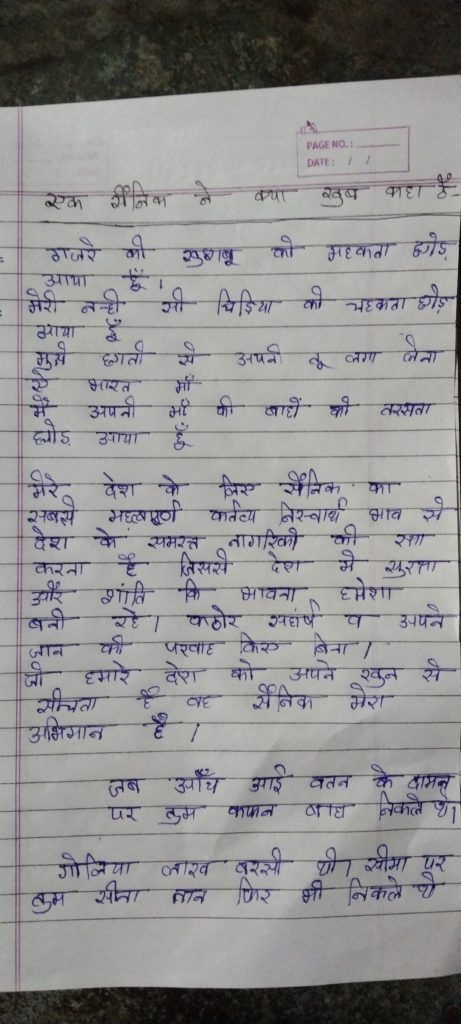 PAGE NO.:
DATE: / /
एक सैनिक ने क्या खुब कहा है-
गजरे की खुशबू को महकता छोड़
आया हूँ।
मेरी नन्ही सी चिडिया को चहकता छोड़
आया हूँ
मुझे छाती से अपनी तू लगा लेना
ऐ भारत माँ
मैं अपनी माँ की बाहों को तरसता
छोड़ आया हूँ
मेरे देश के लिए सैनिक का
सबसे महत्वपुर्ण कर्तव्य निस्वार्थ भाव से
देश के समस्त नागरिको की रक्षा
करना है जिससे देश मे सुरक्षा
और शांति कि भावना हमेशा
बनी रहे। कठोर सघंर्ष व अपने
जान की परवाह किए बिना।
जो हमारे देश को अपने खुन से
सीचता है वह सैनिक मेरा
अभिमान है।
जब आँच आई वतन के दामन
पर तुम कफन बाध निकले थे।
गोलिया लाख बरसी थी। सीमा पर
तुम सीना तान फिर भी निकले थे